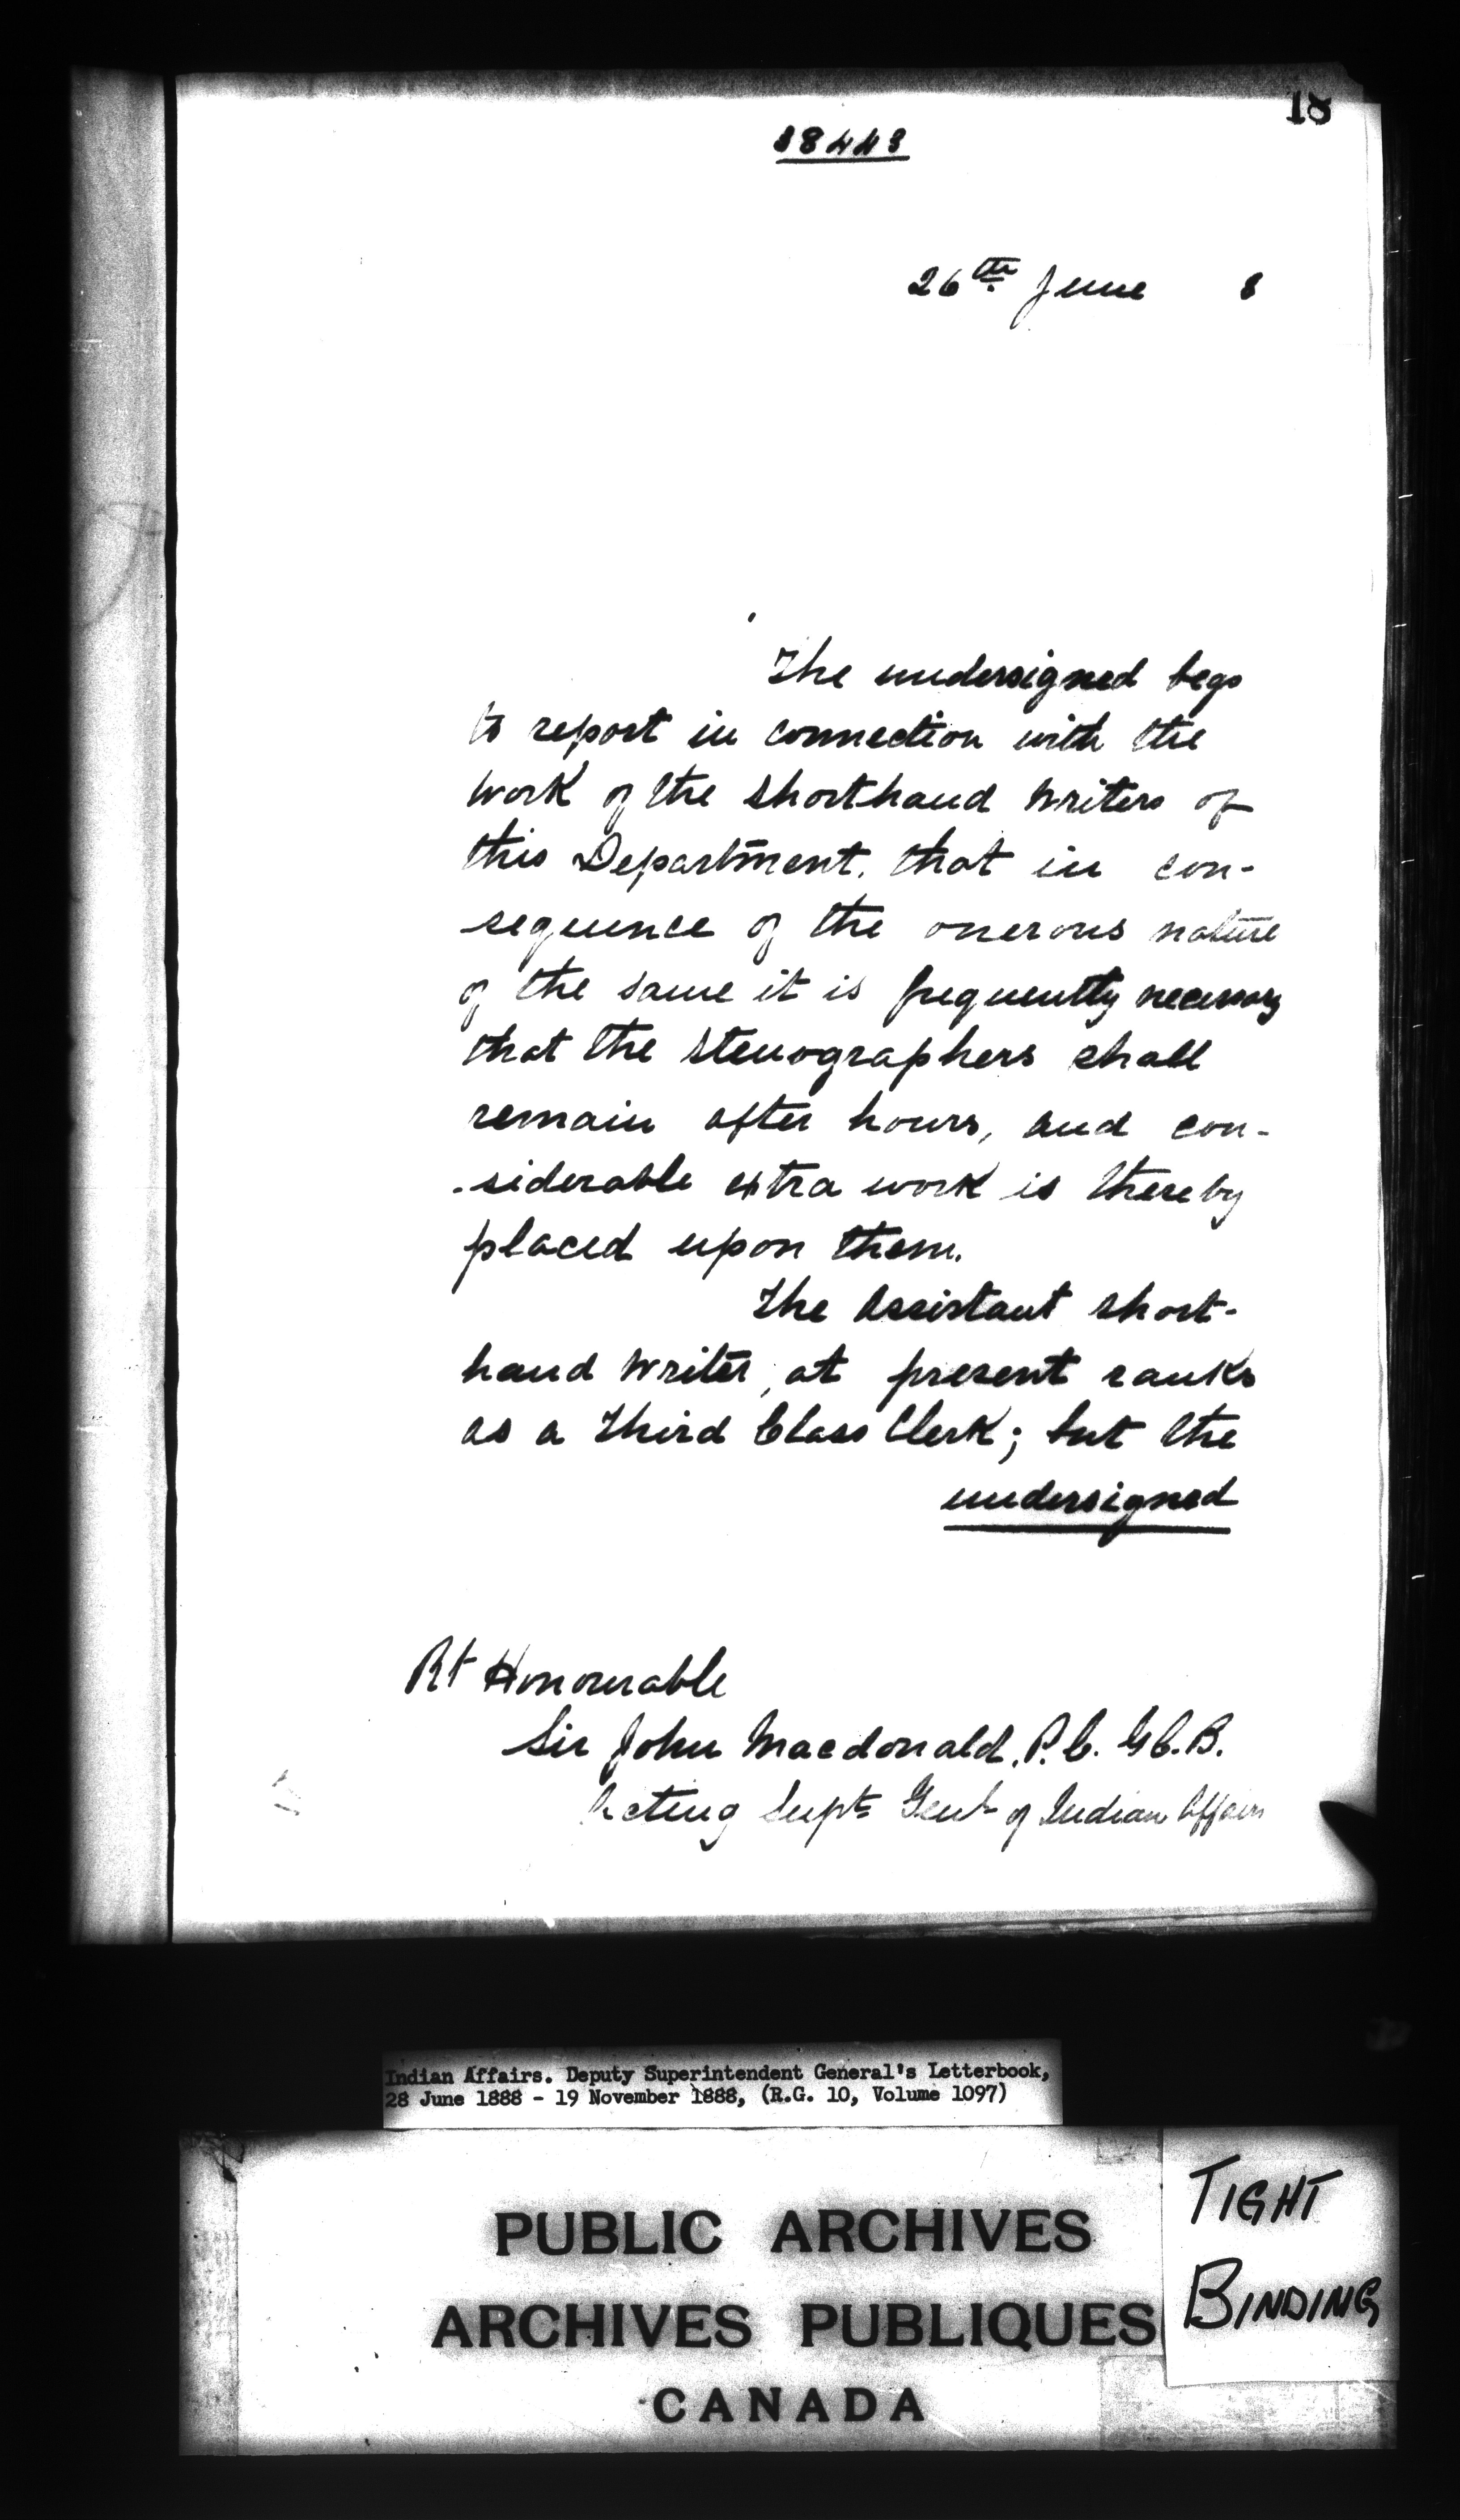 18
38443
26th June 8
The undersigned begs
to report in connection with the
work of the shorthand writers of
this Department, that in con-
sequence of the onerous nature
of the same it is frequently necessary
that the stenographers shall
remain after hours, and con-
-siderable extra work is thereby
placed upon them.
The Assistant short-
hand writer, at present ranks
as a Third Class Clerk; but the
undersigned
Rt Honourable
Sir John Macdonald, P.C. G.C.B.
Acting Supt Genl of Indian Affairs
Indian Affairs. Deputy Superintendent General's Letterbook,
28 June 1888 - 19 November 1888, (R.G. 10, Volume 1097)
PUBLIC ARCHIVES
ARCHIVES PUBLIQUES
CANADA
TIGHT
BINDING